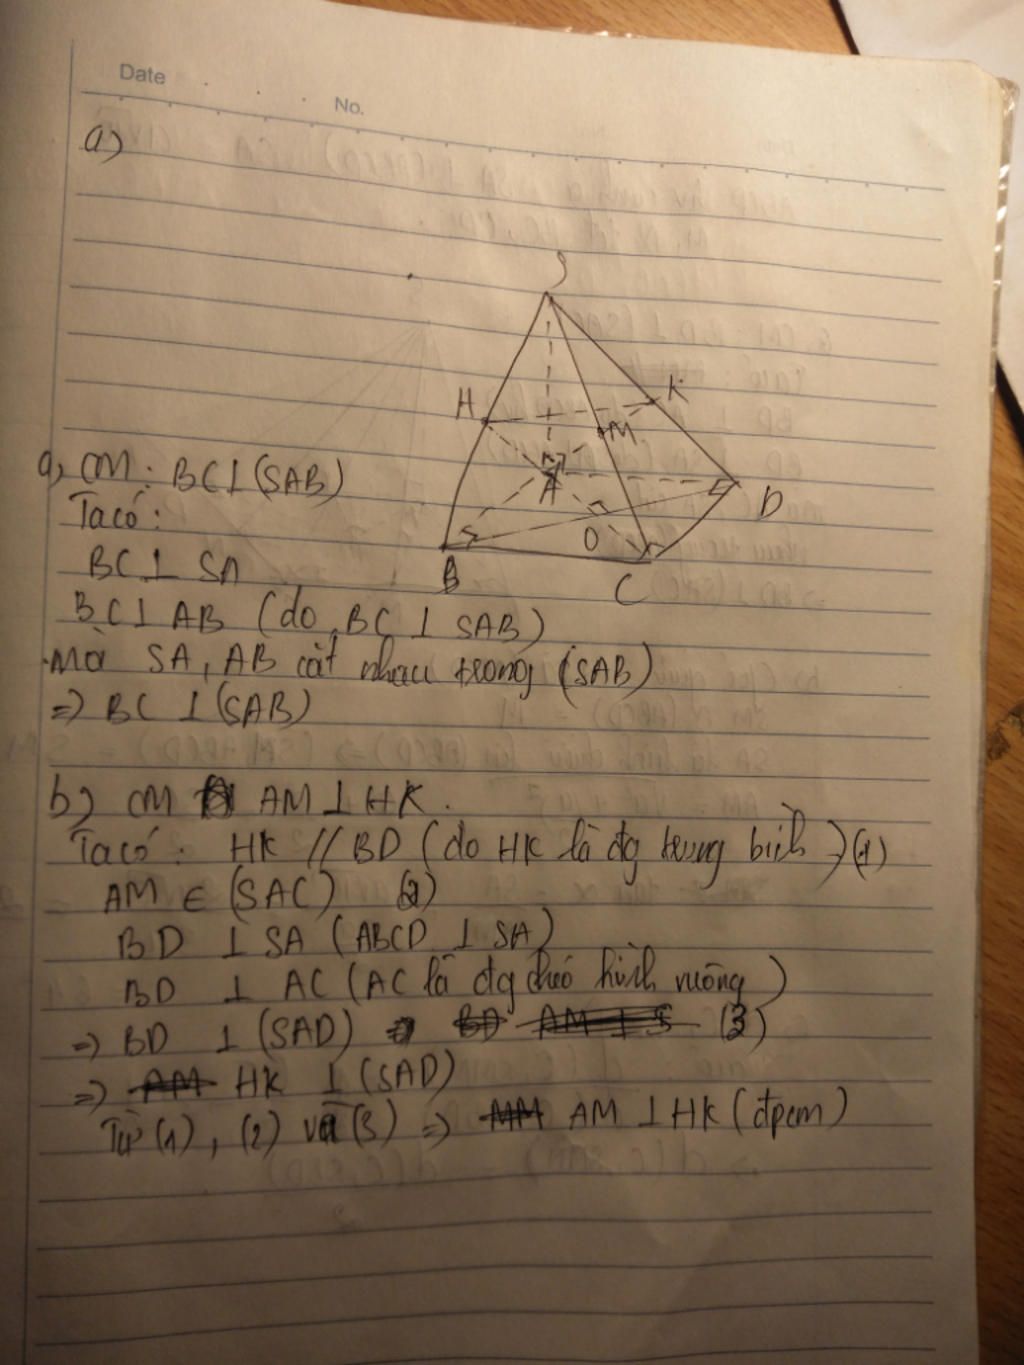 Date
No.
a)
S
H
K
M
A
D
O
B
C
a, CM: BC⊥(SAB)
Ta có:
BC⊥ SA
BC⊥ AB (do BC ⊥ SAB)
Mà SA, AB cắt nhau trong (SAB)
=> BC ⊥(SAB)
b) CM AM⊥HK.
Ta có: HK // BD (do HK là đg trung bình) (1)
AM ∈ (SAC) (2)
BD ⊥ SA (ABCD ⊥ SA)
BD ⊥ AC (AC là đg chéo hình vuông)
=> BD ⊥ (SAD) (3)
=> HK ⊥(SAD)
Từ (1), (2) và (3) => AM⊥HK (đpcm)